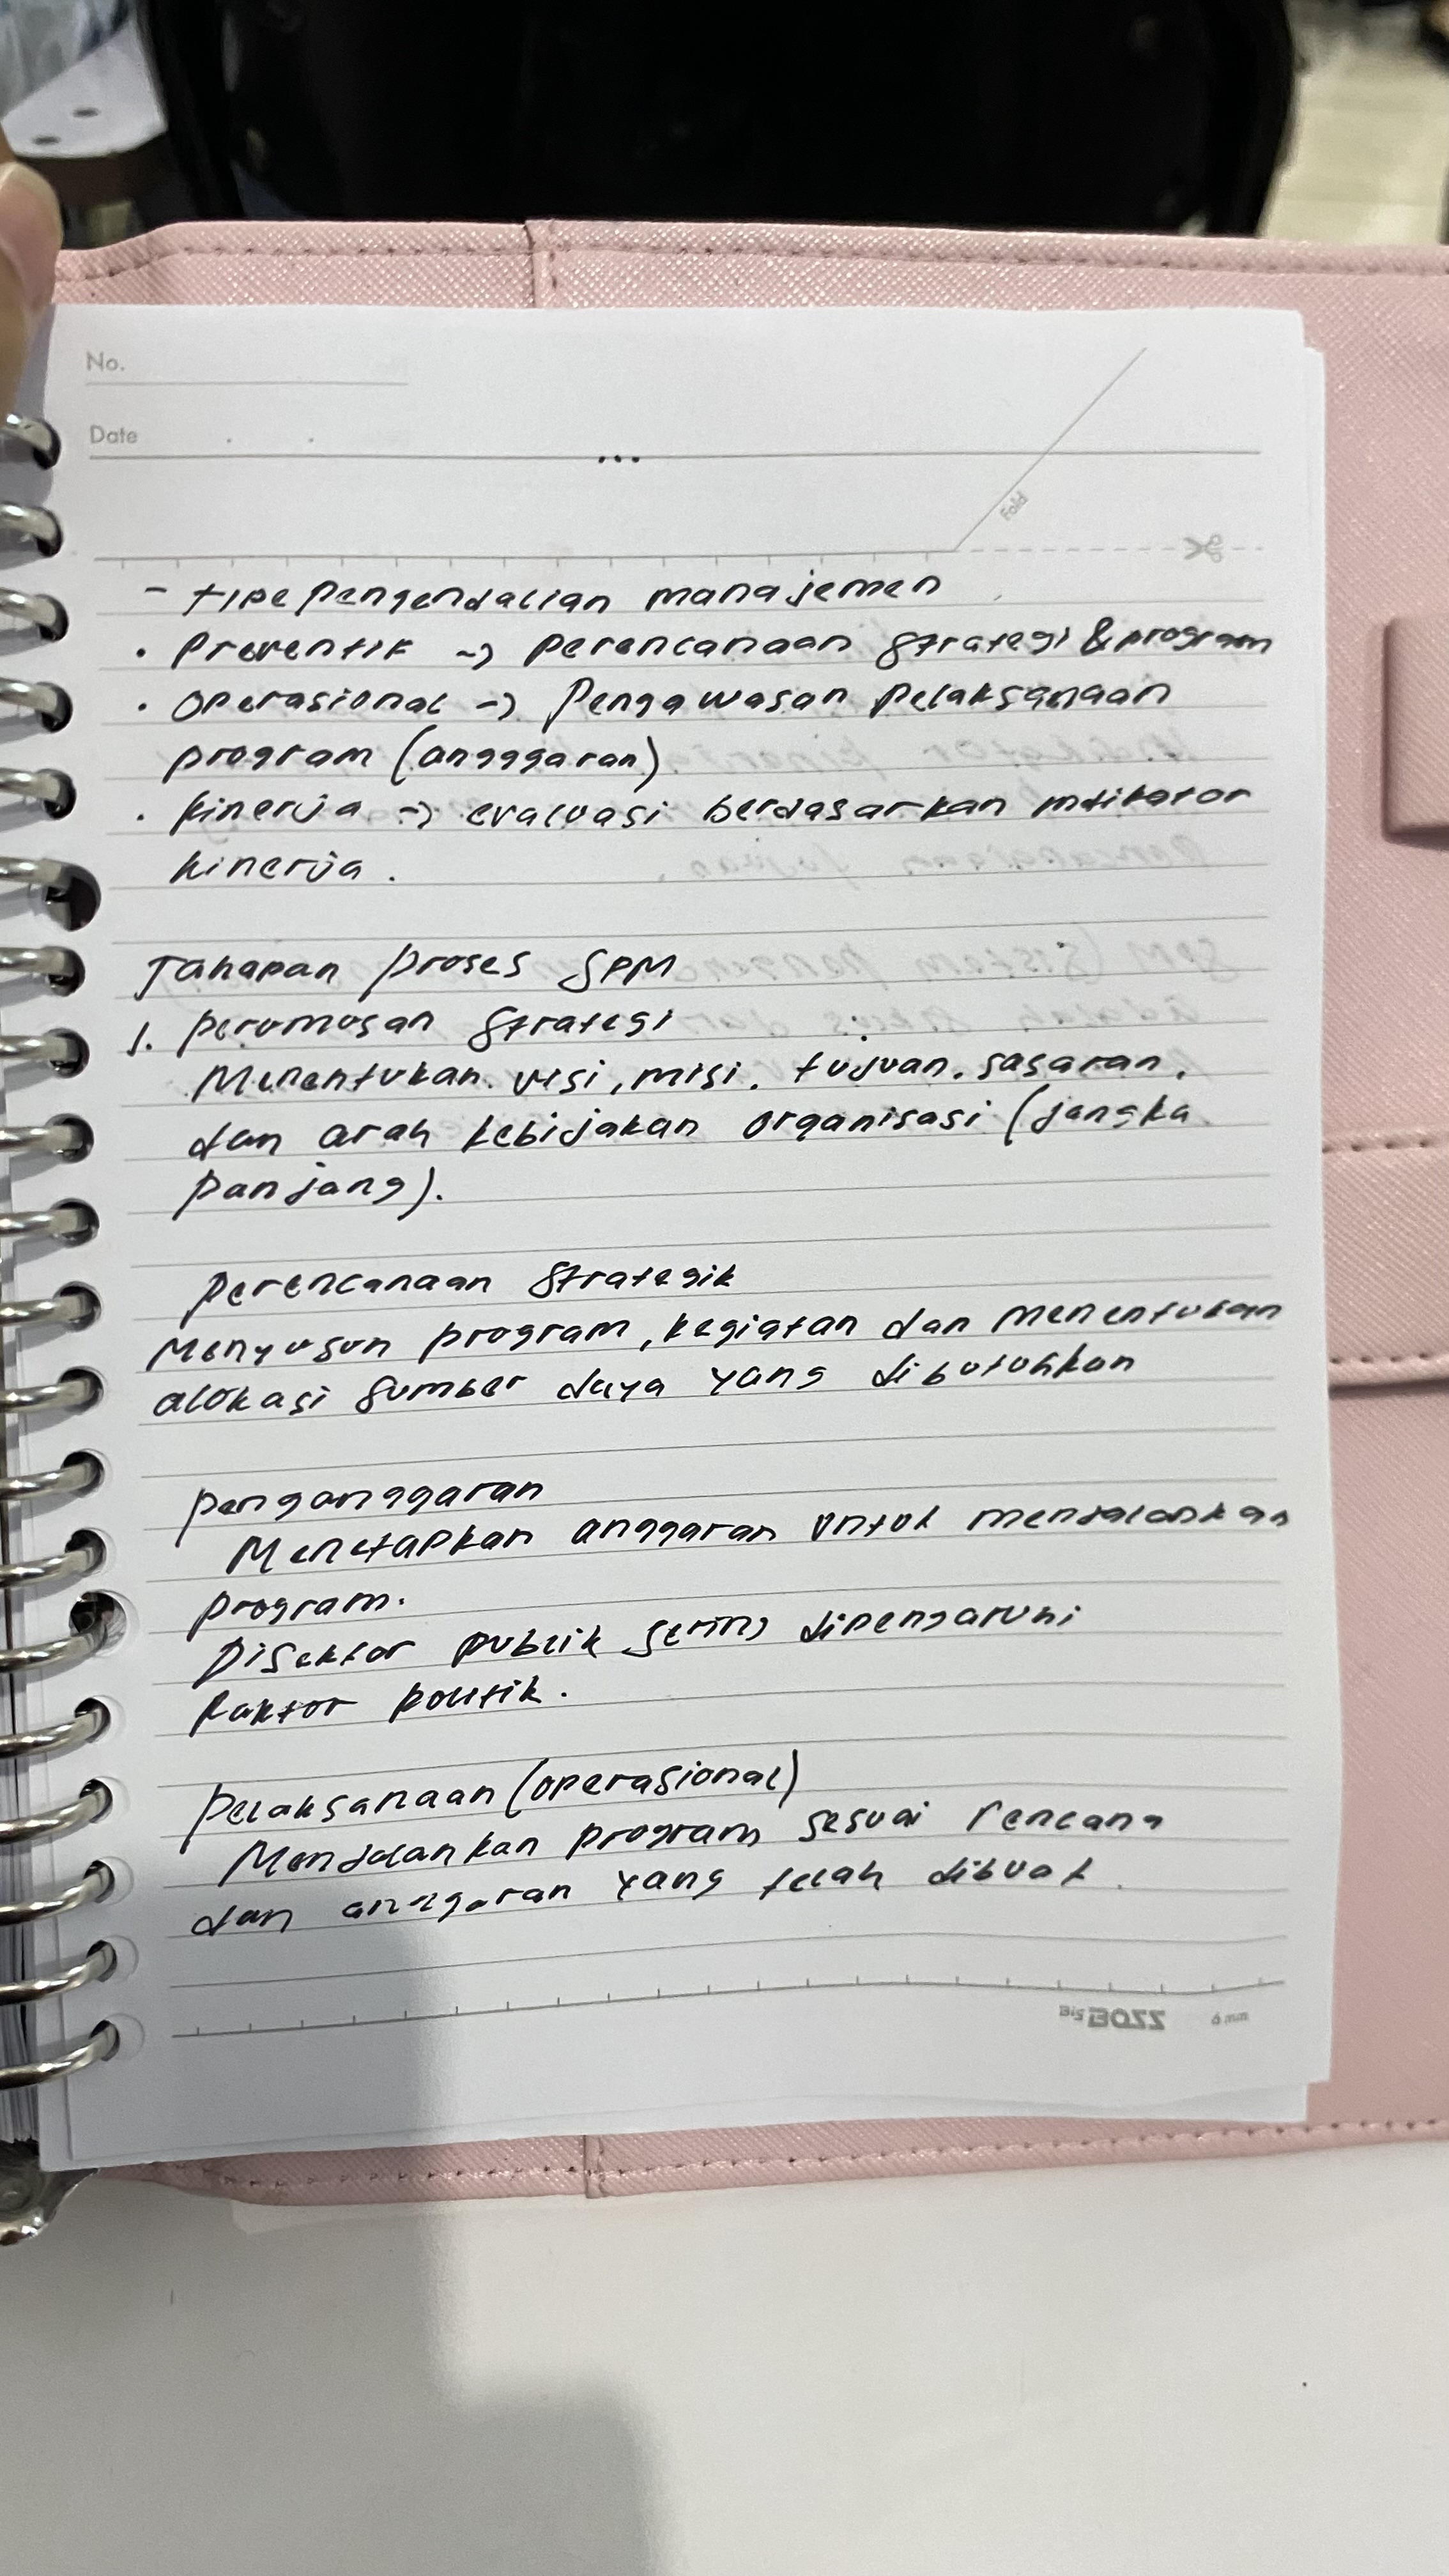 No.
Date
Fold
- tipe pengendalian manajemen
• Preventif -> perencanaan strategi & program
• operasional -> Pengawasan pelaksanaan
program (angggaran)
• kinerja -> evaluasi berdasarkan indikator
kinerja.
Tahapan proses SPM
1. perumusan strategi
Menentukan visi, misi, tujuan, sasaran,
dan arah kebijakan organisasi (jangka
panjang).
perencanaan strategik
Menyusun program, kegiatan dan menentukan
alokasi sumber daya yang dibutuhkan
penganggaran
Menetapkan anggaran untuk menjalankan
program.
Disektor publik sering dipengaruhi
faktor politik.
pelaksanaan (operasional)
Menjalankan program sesuai rencana
dan anggaran yang telah dibuat.
Big BOSS 6 mm